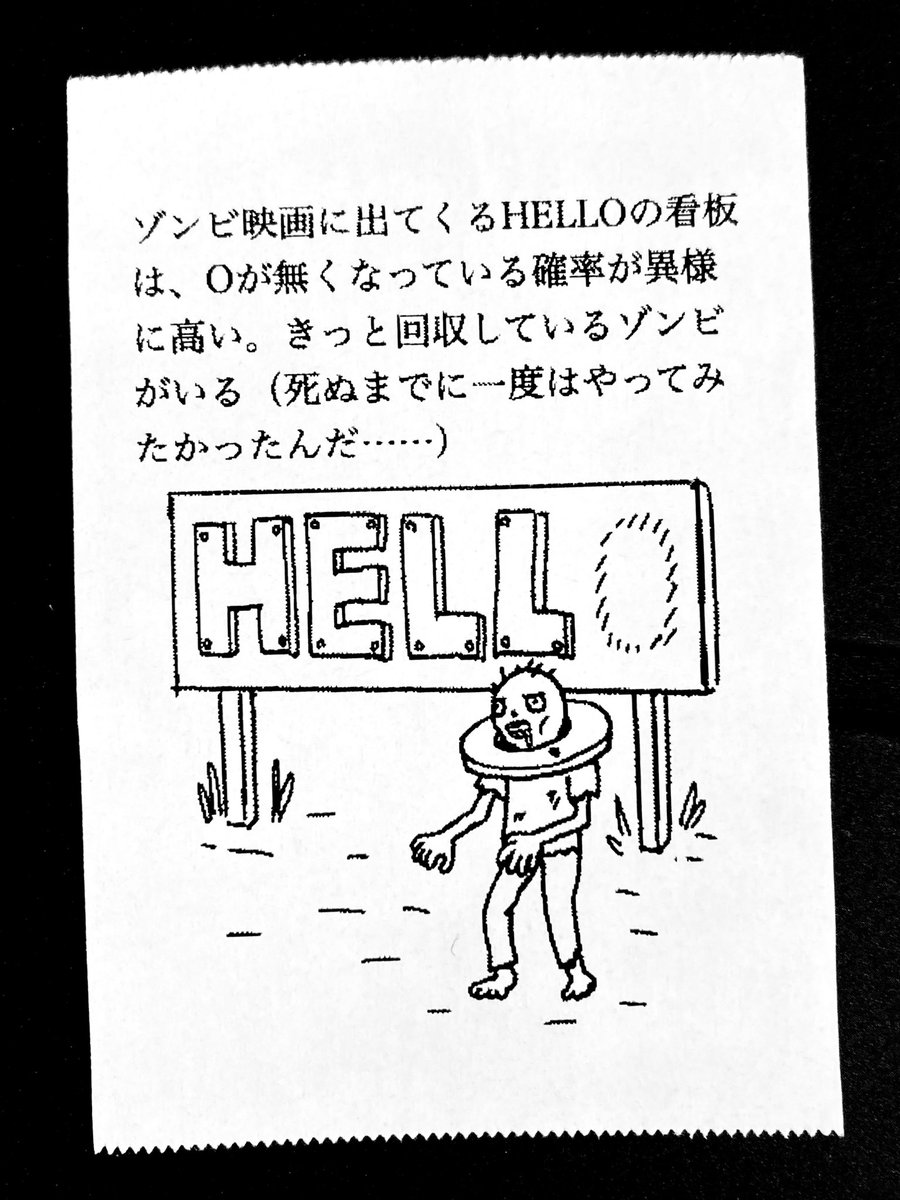 ゾンビ映画に出てくるHELLOの看板
は、Oが無くなっている確率が異様
に高い。きっと回収しているゾンビ
がいる（死ぬまでに一度はやってみ
たかったんだ……）
HELL